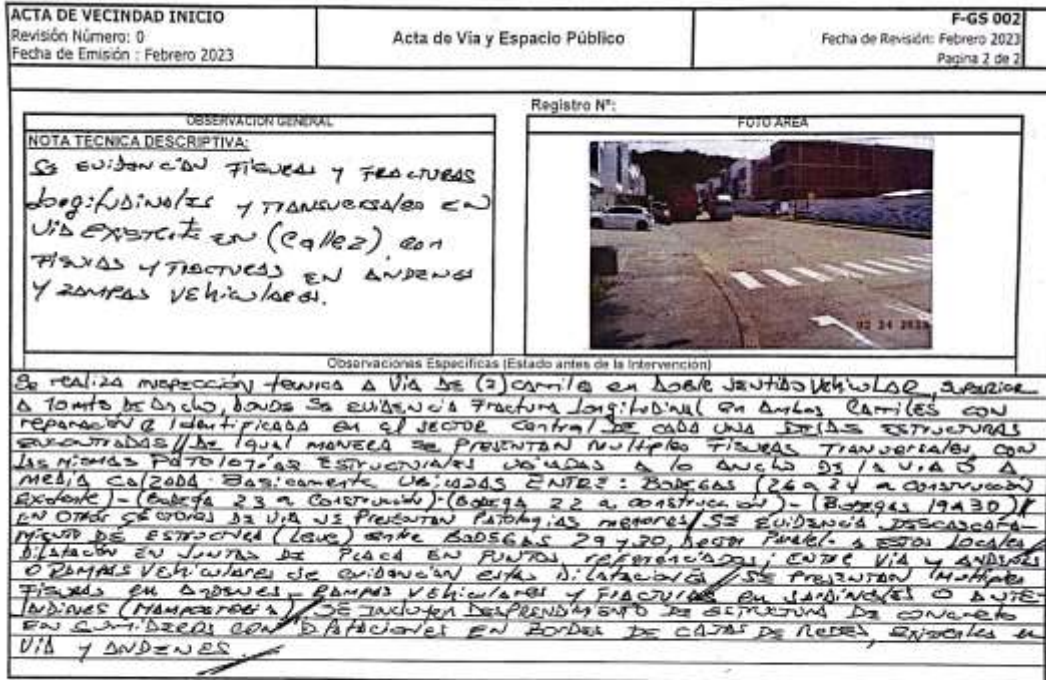 ACTA DE VECINDAD INICIO
Revisión Número: 0
Fecha de Emisión : Febrero 2023
Acta de Vía y Espacio Público
F-GS 002
Fecha de Revisión: Febrero 2023
Pagina 2 de 2
Registro N°:
OBSERVACION GENERAL
NOTA TECNICA DESCRIPTIVA:
Se evidencian Fisuras y Fracturas
longitudinales y transversales en
Vía existente en (Calle 2), con
Fisuras y Fracturas en andenes
y rampas vehiculares.
FOTO AREA
02 24 2023
Observaciones Especificas (Estado antes de la Intervención)
Se realiza inspección tecnica a Vía de (2) carriles en doble sentido vehicular, superior
a 10 mts de ancho, donde se evidencia Fractura longitudinal en ambos carriles con
reparación identificada en el sector central de cada una de las estructuras
encontradas // De igual manera se presentan multiples Fisuras transversales con
las mismas patologías estructurales ubicadas a lo ancho de la vía ó a
media calzada. Basicamente ubicadas entre: Bodegas (26 a 24 a construcción
existente) - (Bodega 23 a construcción) - (Bodega 22 a construcción) - (Bodegas 19 a 30) //
En otros sectores de vía se presentan patologías menores / Se evidencia descascara-
miento de estructura (leve) entre Bodegas 29 y 30, a estos locales
Dilatación en juntas de placa en puntos referenciados; entre vía y andenes
o rampas vehiculares se evidencian estas dilataciones / Se presentan multiples
Fisuras en andenes - rampas vehiculares y fracturas en jardines o ante-
jardines (mampostería) / Se incluyen desprendimiento de estructura de concreto
en sumideros con dilataciones en bordes de cajas de redes, existentes en
vía y andenes.